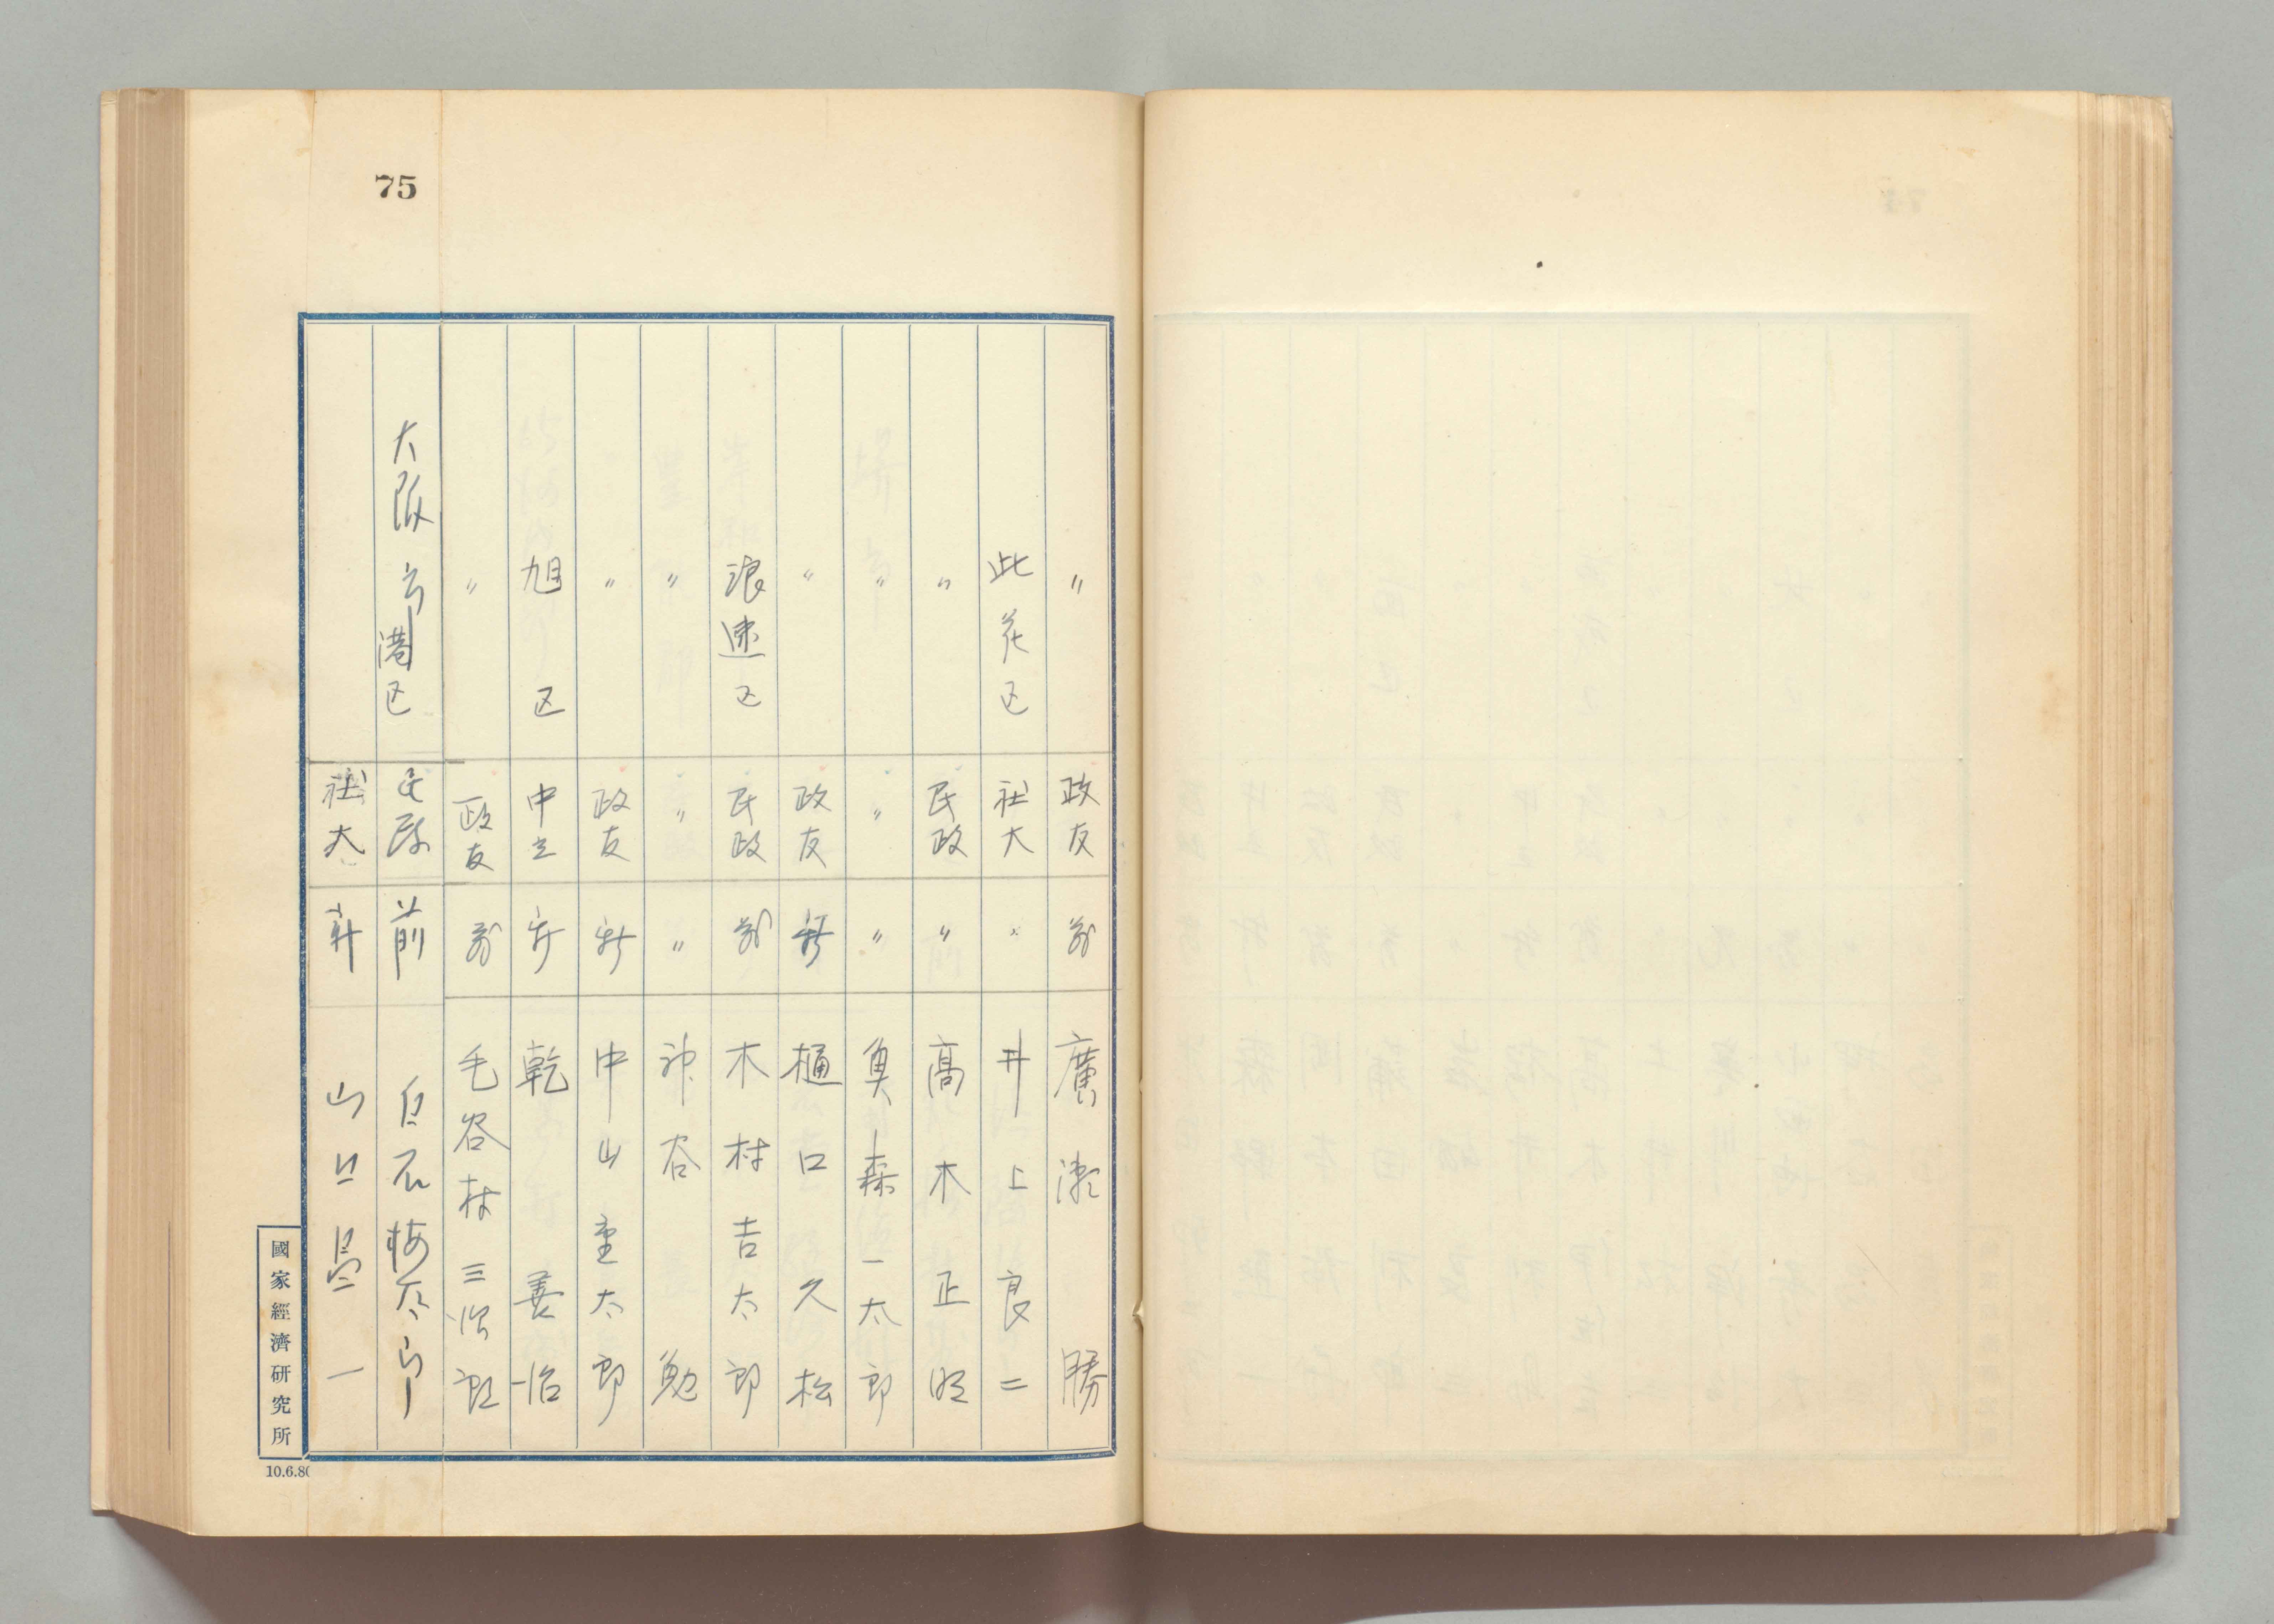 75
〃 政友 前 廣瀬 勝
此花区 社大 〃 井上良二
〃 民政 〃 高木正
〃 〃 〃 奥森一太郎
〃 政友 新 樋口久松
浪速区 民政 前 木村吉太郎
〃 〃 〃 神谷 勉
〃 政友 新 中山重太郎
旭区 中立 新 乾 善治
〃 政友 前 毛谷村三治郎
大阪市港区 民政 前 白石梅太郎
社大 新 山口昌一
國家經濟研究所
10.6.80